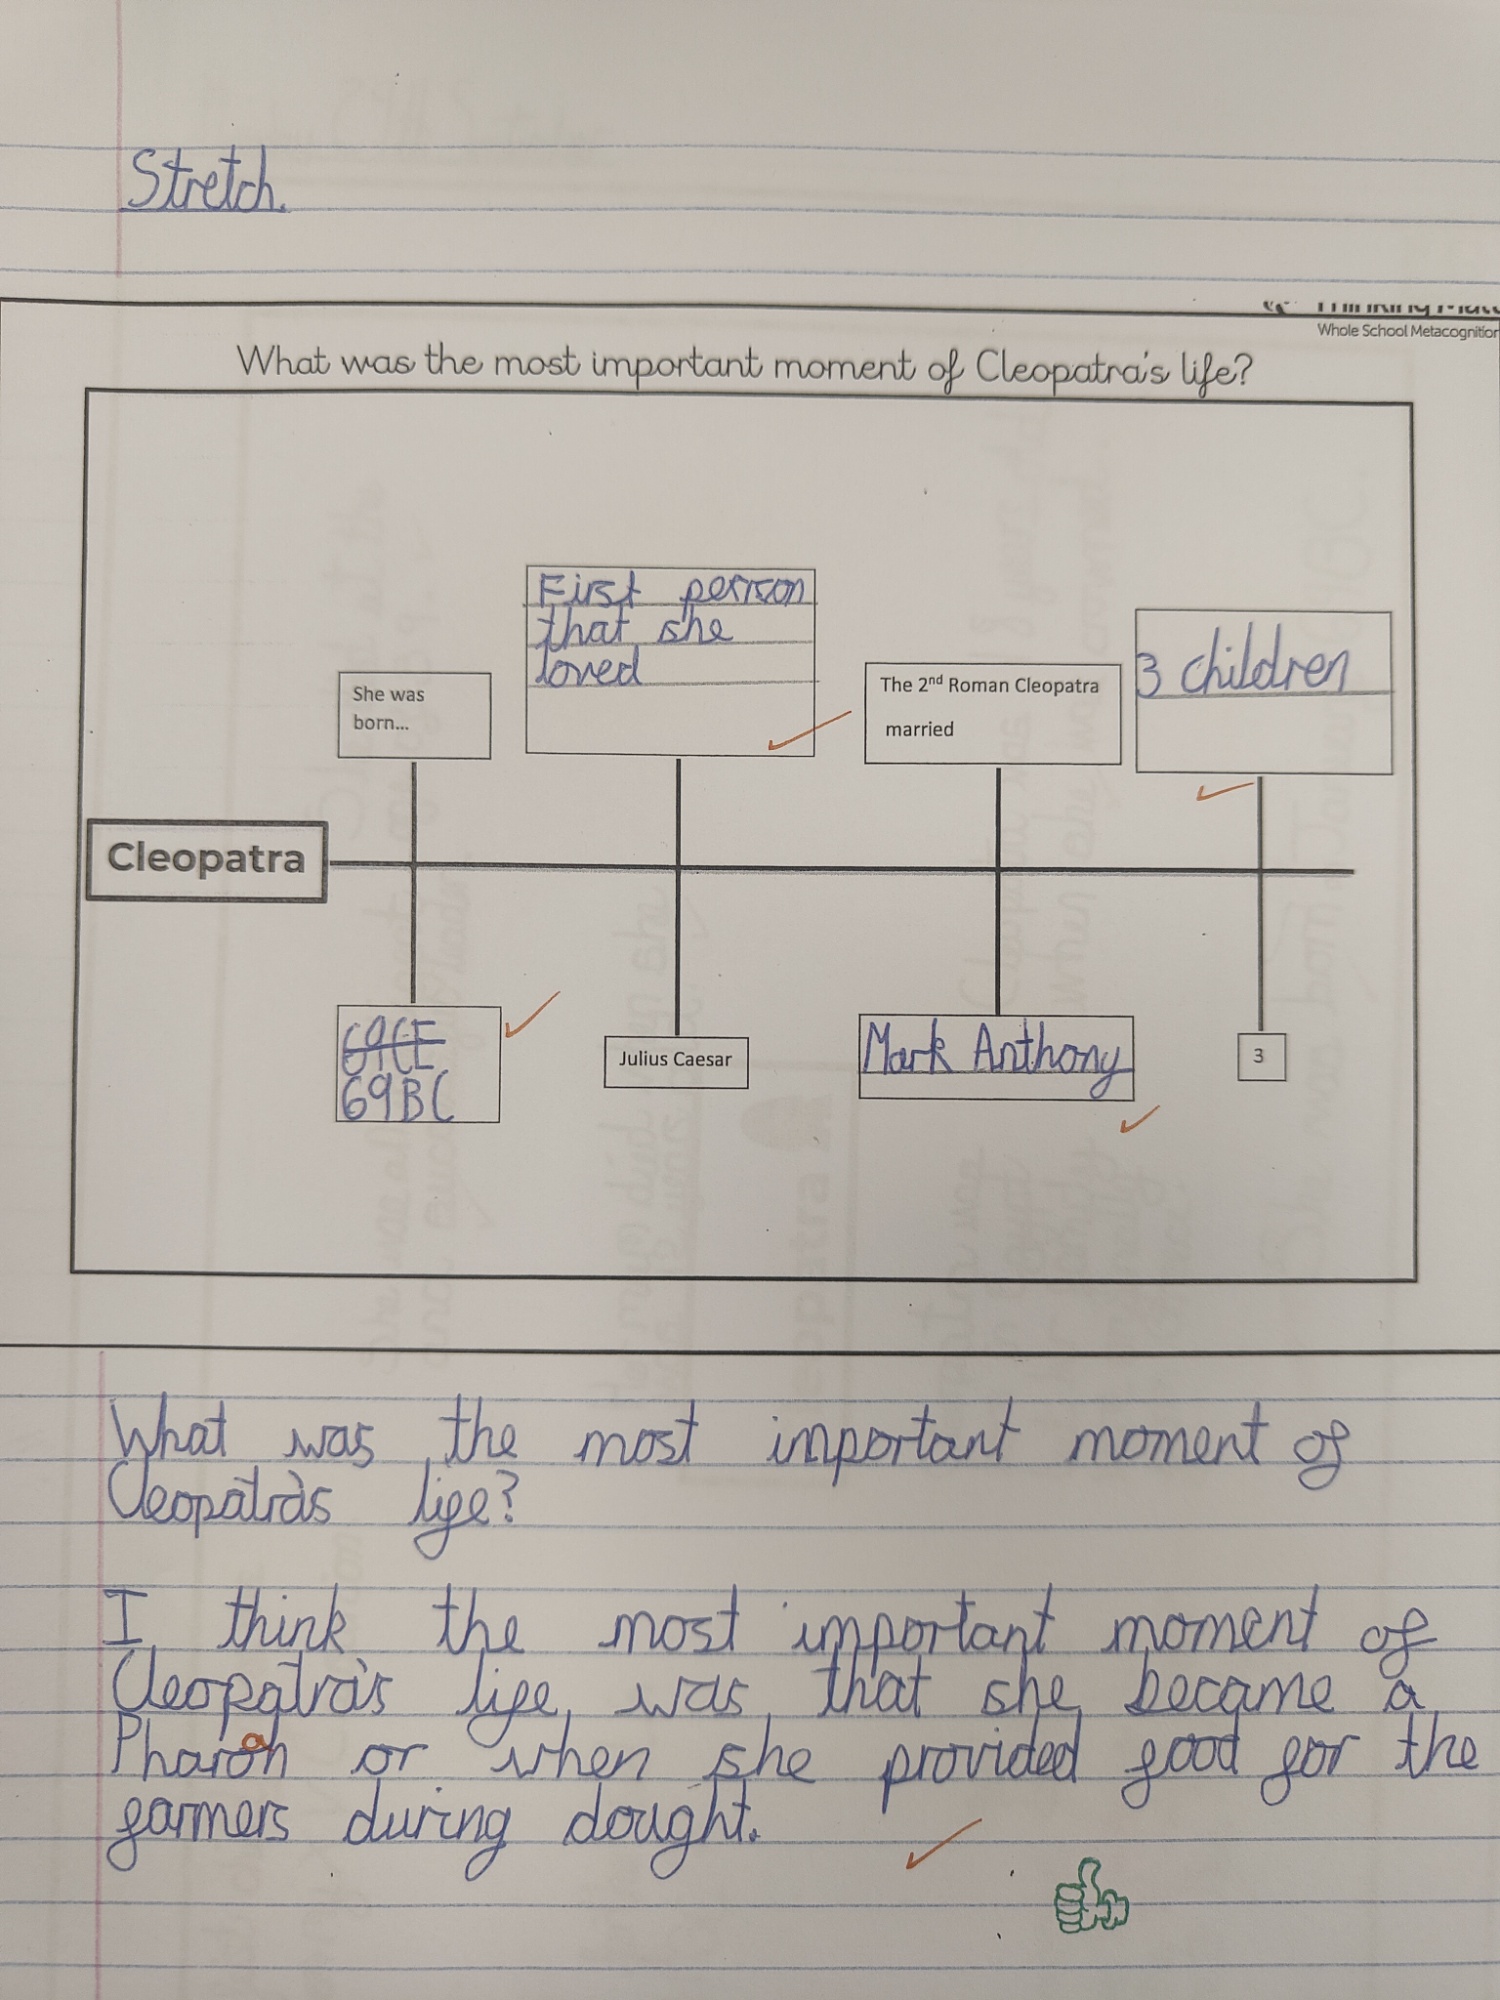 Stretch.
Whole School Metacognition
What was the most important moment of Cleopatra's life?
First person
that she
loved
3 children
She was
born...
The 2nd Roman Cleopatra
married
Cleopatra
69CE
69BC
Julius Caesar
Mark Anthony
3
What was the most important moment of
Cleopatra's life?
I think the most important moment of
Cleopatra's life was that she became a
Pharoah or when she provided food for the
farmers during dought.